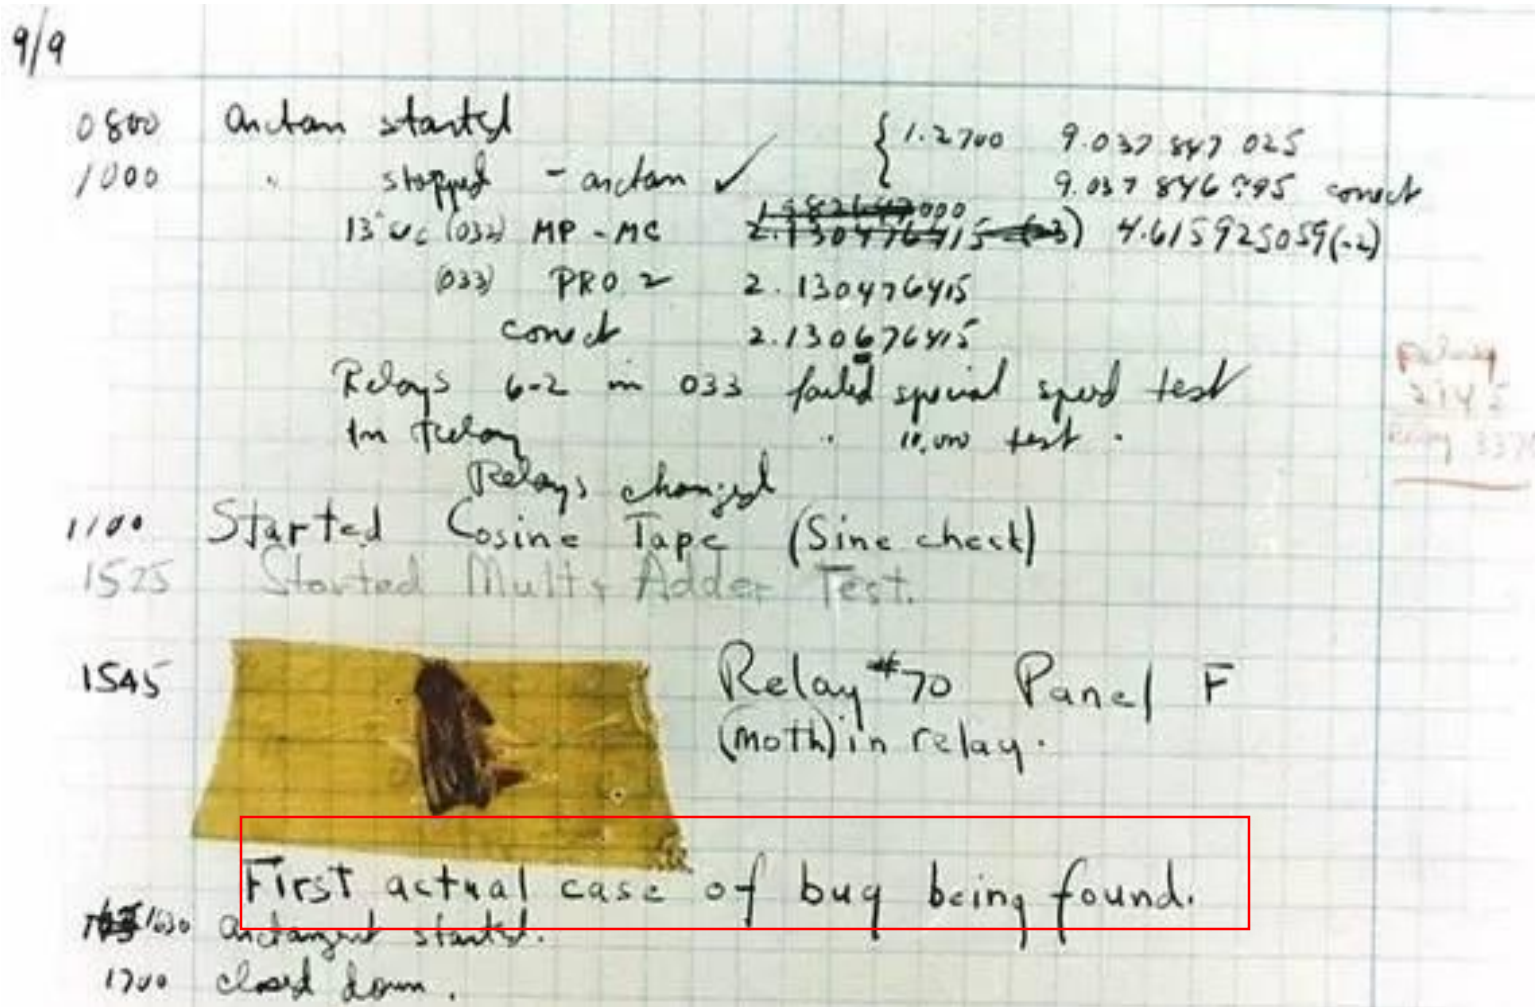 9/9
0800 Antan started
1000 " stopped - antan ✓ { 1.2700 9.037 847 025
9.037 846 995 correct
13"uc (032) MP - MC 2.130476415 (-3) 4.615925059(-2)
(033) PRO 2 2.130476415
correct 2.130676415
Relays 6-2 in 033 failed special speed test
In Relay " 10.000 test .
Relays changed
1100 Started Cosine Tape (Sine check)
1525 Started Mult + Adder Test.
1545 Relay #70 Panel F
(moth) in relay.
First actual case of bug being found.
1630 antangent started.
1700 closed down.
Relay
2145
Relay 3370